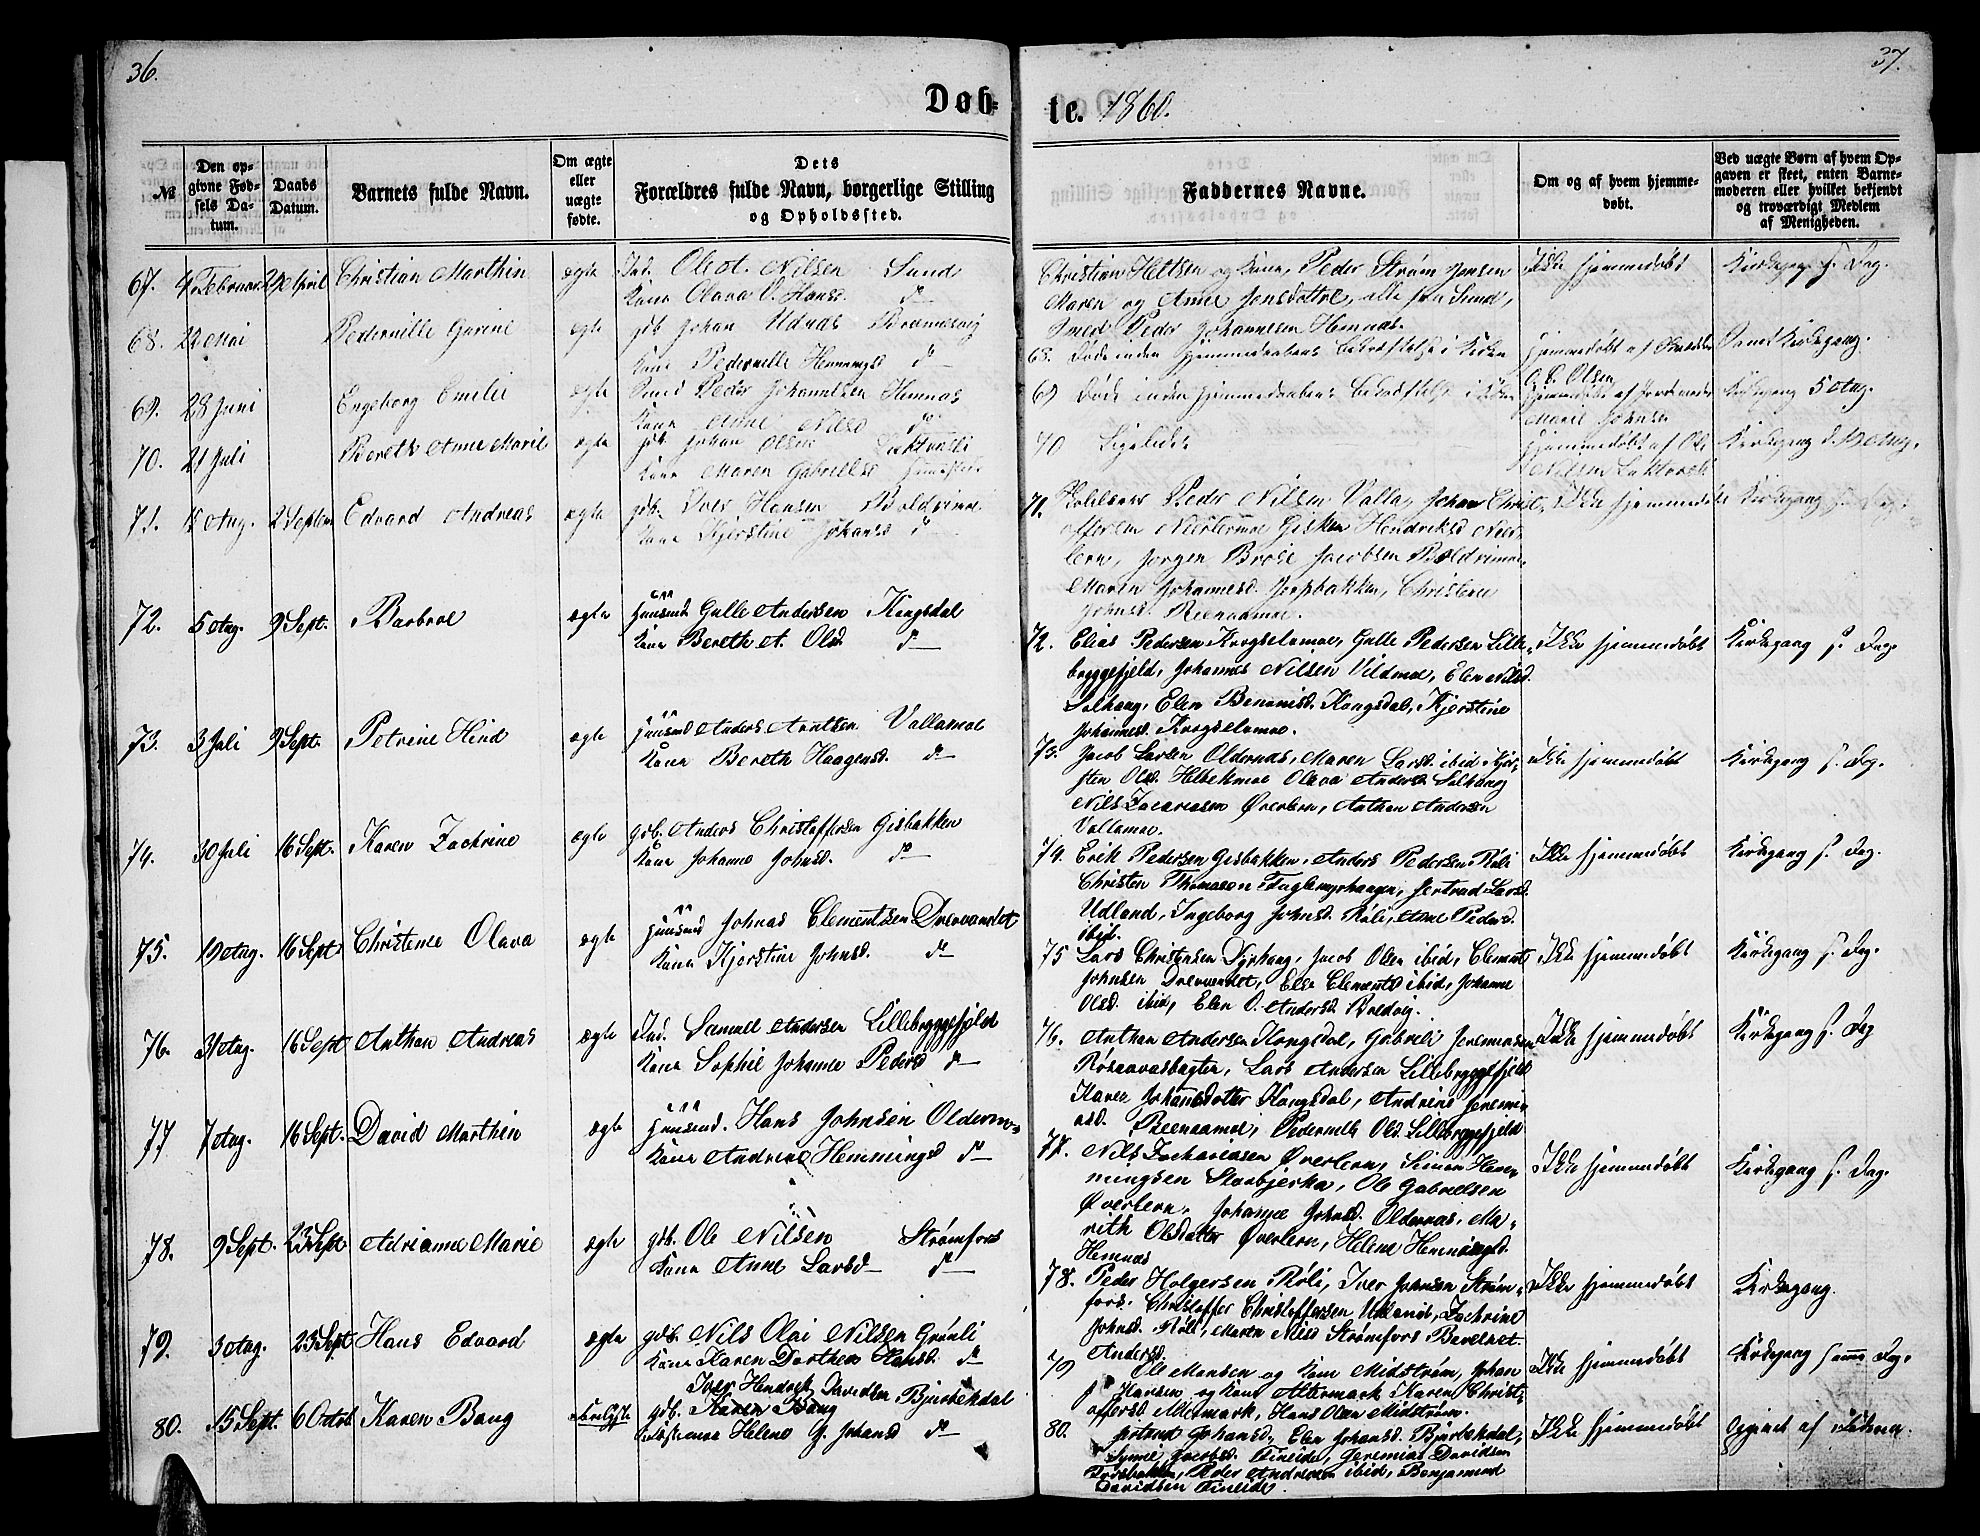 36.
37.
Døb-
te. 1860.
№
Den op-
givne Fød-
sels Da-
tum.
Daabs
Datum.
Barnets fulde Navn.
Om ægte
eller
uægte
fødte.
Dets
Forældres fulde Navn, borgerlige Stilling
og Opholdssted.
Faddernes Navne.
Om og af hvem hjemme-
døbt.
Ved uægte Børn af hvem Op-
gaven er skeet, enten Barne-
moderen eller hvilket bekjendt
og troværdigt Medlem
af Menigheden.
67. 4 Februar 29 April Christian Marthin ægte Ind. Ole A. Nilsen Sund
Kone Olava O. Hansd. do
Christian Heltsen og Kone, Peder Strøm Jensen
Maren og Anne Jensdottre, alle fra Sund,
Smed Peder Johannessen Hemnæs.
Ikke hjemmedøbt Kirkegang s. Dag.
68. 22 Mai Pedernille Gurine ægte gdb Johan Udnæs
Kone Pedernille Hemmingsd do
68. Døde inden Hjemmedaabens Bekræftelse i Kirken
hjemmedøbt af
O. C. Olsen
Kirkegang.
69. 28 Juni Engeborg Emilie ægte Smed Peder Johannesen Hemnæs
Kone Anne Nilsd do
69 Døde inden Hjemmedaabens Bekræftelse i Kirken
hjemmedøbt af Jordemoder
Marie Johnsen
Kirkegang 5 Aug.
70. 21 Juli Bereth Anne Marie ægte gdb. Johan Olsen
Kone Maren Gabrielsd
70 Ligeledes
hjemmedøbt af Ole
Nilsen
Kirkegang d. 12 Aug.
71. 12 Aug. 2 Septem Edvard Andreas ægte gdb. Iver Hansen Boldrimo
Kone Kjerstine Johansd do
71. Peder Nilsen Valla, Johan Christ-
offersen Giskon Hendriksd
Jørgen Brose Jacobsen Boldrimoe,
Maren Johannesd. Christen
Johnsd.
Ikke hjemmedøbt Kirkegang s. Dag.
72. 5 Aug. 9 Sept. Barbroe ægte Huusmd Gulle Andersen Kongsdal
Kone Bereth A. Olsd. do
72. Elias Pedersen Krogselvmoe, Gulle Pedersen Lille-
bryggefjeld, Johannes Nilsen Vildmoe, Elen Nilsd.
Solhaug, Elen Benonisd. Kongsdal, Kjerstine
Johannesd. Krogselvmoe.
Ikke hjemmedøbt Kirkegang s. Dag
73. 3 Juli 9 Sept. Petrine Hind ægte Huusmd Anders Arntsen Vallamoe
Kone Bereth Haagensd. do
73. Jacob Larsen Oldernæs, Maren Larsd. ibid, Kjer-
sten Olsd. Olava Andersd. Solhaug
Nils Zacariasen Øverleren, Anthon Andersen
Vallamoe.
Ikke hjemmedøbt Kirkegang s. Dag.
74. 30 Juli 16 Sept. Karen Zachrine ægte gdb. Anders Christoffersen Gisbakken
Kone Johanne Johnsd. do
74. Erik Pedersen Gisbakken, Anders Pedersen Røli
Christen Thomasen Fuglemyrhaugen, Jertrud Larsd.
Udland, Ingeborg Johnsd. Røli, Anne Pedersd.
ibid.
Ikke hjemmedøbt Kirkegang s. Dag.
75. 19 Aug. 16 Sept Christence Olava ægte Huusmd Johnas Clementsen Drevvandet
Kone Kjerstine Johnsd. do
75 Lars Christensen Dyrhaug, Jacob Olsen ibid, Clement
Johnsen Drevvandet, Else Clementsd ibid, Johanne
Olsd. ibid, Elen O. Andersd.
Ikke hjemmedøbt Kirkegang s. Dag.
76. 31 Aug. 16 Sept Anthon Andreas ægte Ind. Samuel Andersen Lillebryggefjeld
Kone Sophie Johanne Pedersd do
76. Anthon Andersen Kongsdal, Gabriel Jeremiasen
Røsaavasbugten, Lars Andersen Lillebryggefjeld
Karen Johansdatter Kongsdal, Andrine Jeremi-
asd. Pedernille Olsd. Lillebryggefjeld
Ikke hjemmedøbt Kirkegang s. Dag
77 7 Aug. 16 Sept. David Marthin ægte Huusmd. Hans Johnsen Oldernæs
Kone Andrine Hemmingsd do
77. Nils Zachariasen Øverleren, Simon Hem-
mingsen Storbjerka, Ole Gabrielsen
Øverleren, Johanne Johnsd. Oldernæs, Ma-
rith Olsdatter Øverleren, Helene Hemmingsd.
Hemnæs
Ikke hjemmedøbt Kirkegang s. Dag.
78. 9 Sept. 23 Sept. Adrianne Marie ægte gdb. Ole Nilsen Strømfors
Kone Anne Larsd do
78. Peder Holgersen Røli, Iver Johnsen Strøm-
fors, Christoffer Christoffersen Udland, Zachrine
Johnsd. Røli, Maren Nilsd Strømfors
Andersd.
Ikke hjemmedøbt Kirkegang.
79. 3 Aug. 23 Sept Hans Edvard ægte gdb. Nils Olai Nilsen Grønli
Kone Karen Dorthea Hansd. do
79 Ole Monsen og Kone Midstrøm, Johan
Hansen og Kone Altermark Karen Christ-
offersd. Altermark, Hans Olsen Midstrøm.
Ikke hjemmedøbt Kirkegang samme Dag.
80. 15 Sept. 6 Octob. Karen Baug Iver Hendrik Davidsen Bjurbekdal
gdb. Karen Baug
Helene J. Johansd do
80. Jertrud Johansd, Elen Johansd. Bjurbekdal,
Synnev Jacobsd. Fineide, Jeremias Davidsen
Peder Andersen ibid, Benjamend
Davidsen Fineide.
Ikke hjemmedøbt Opgivet af Faderen.